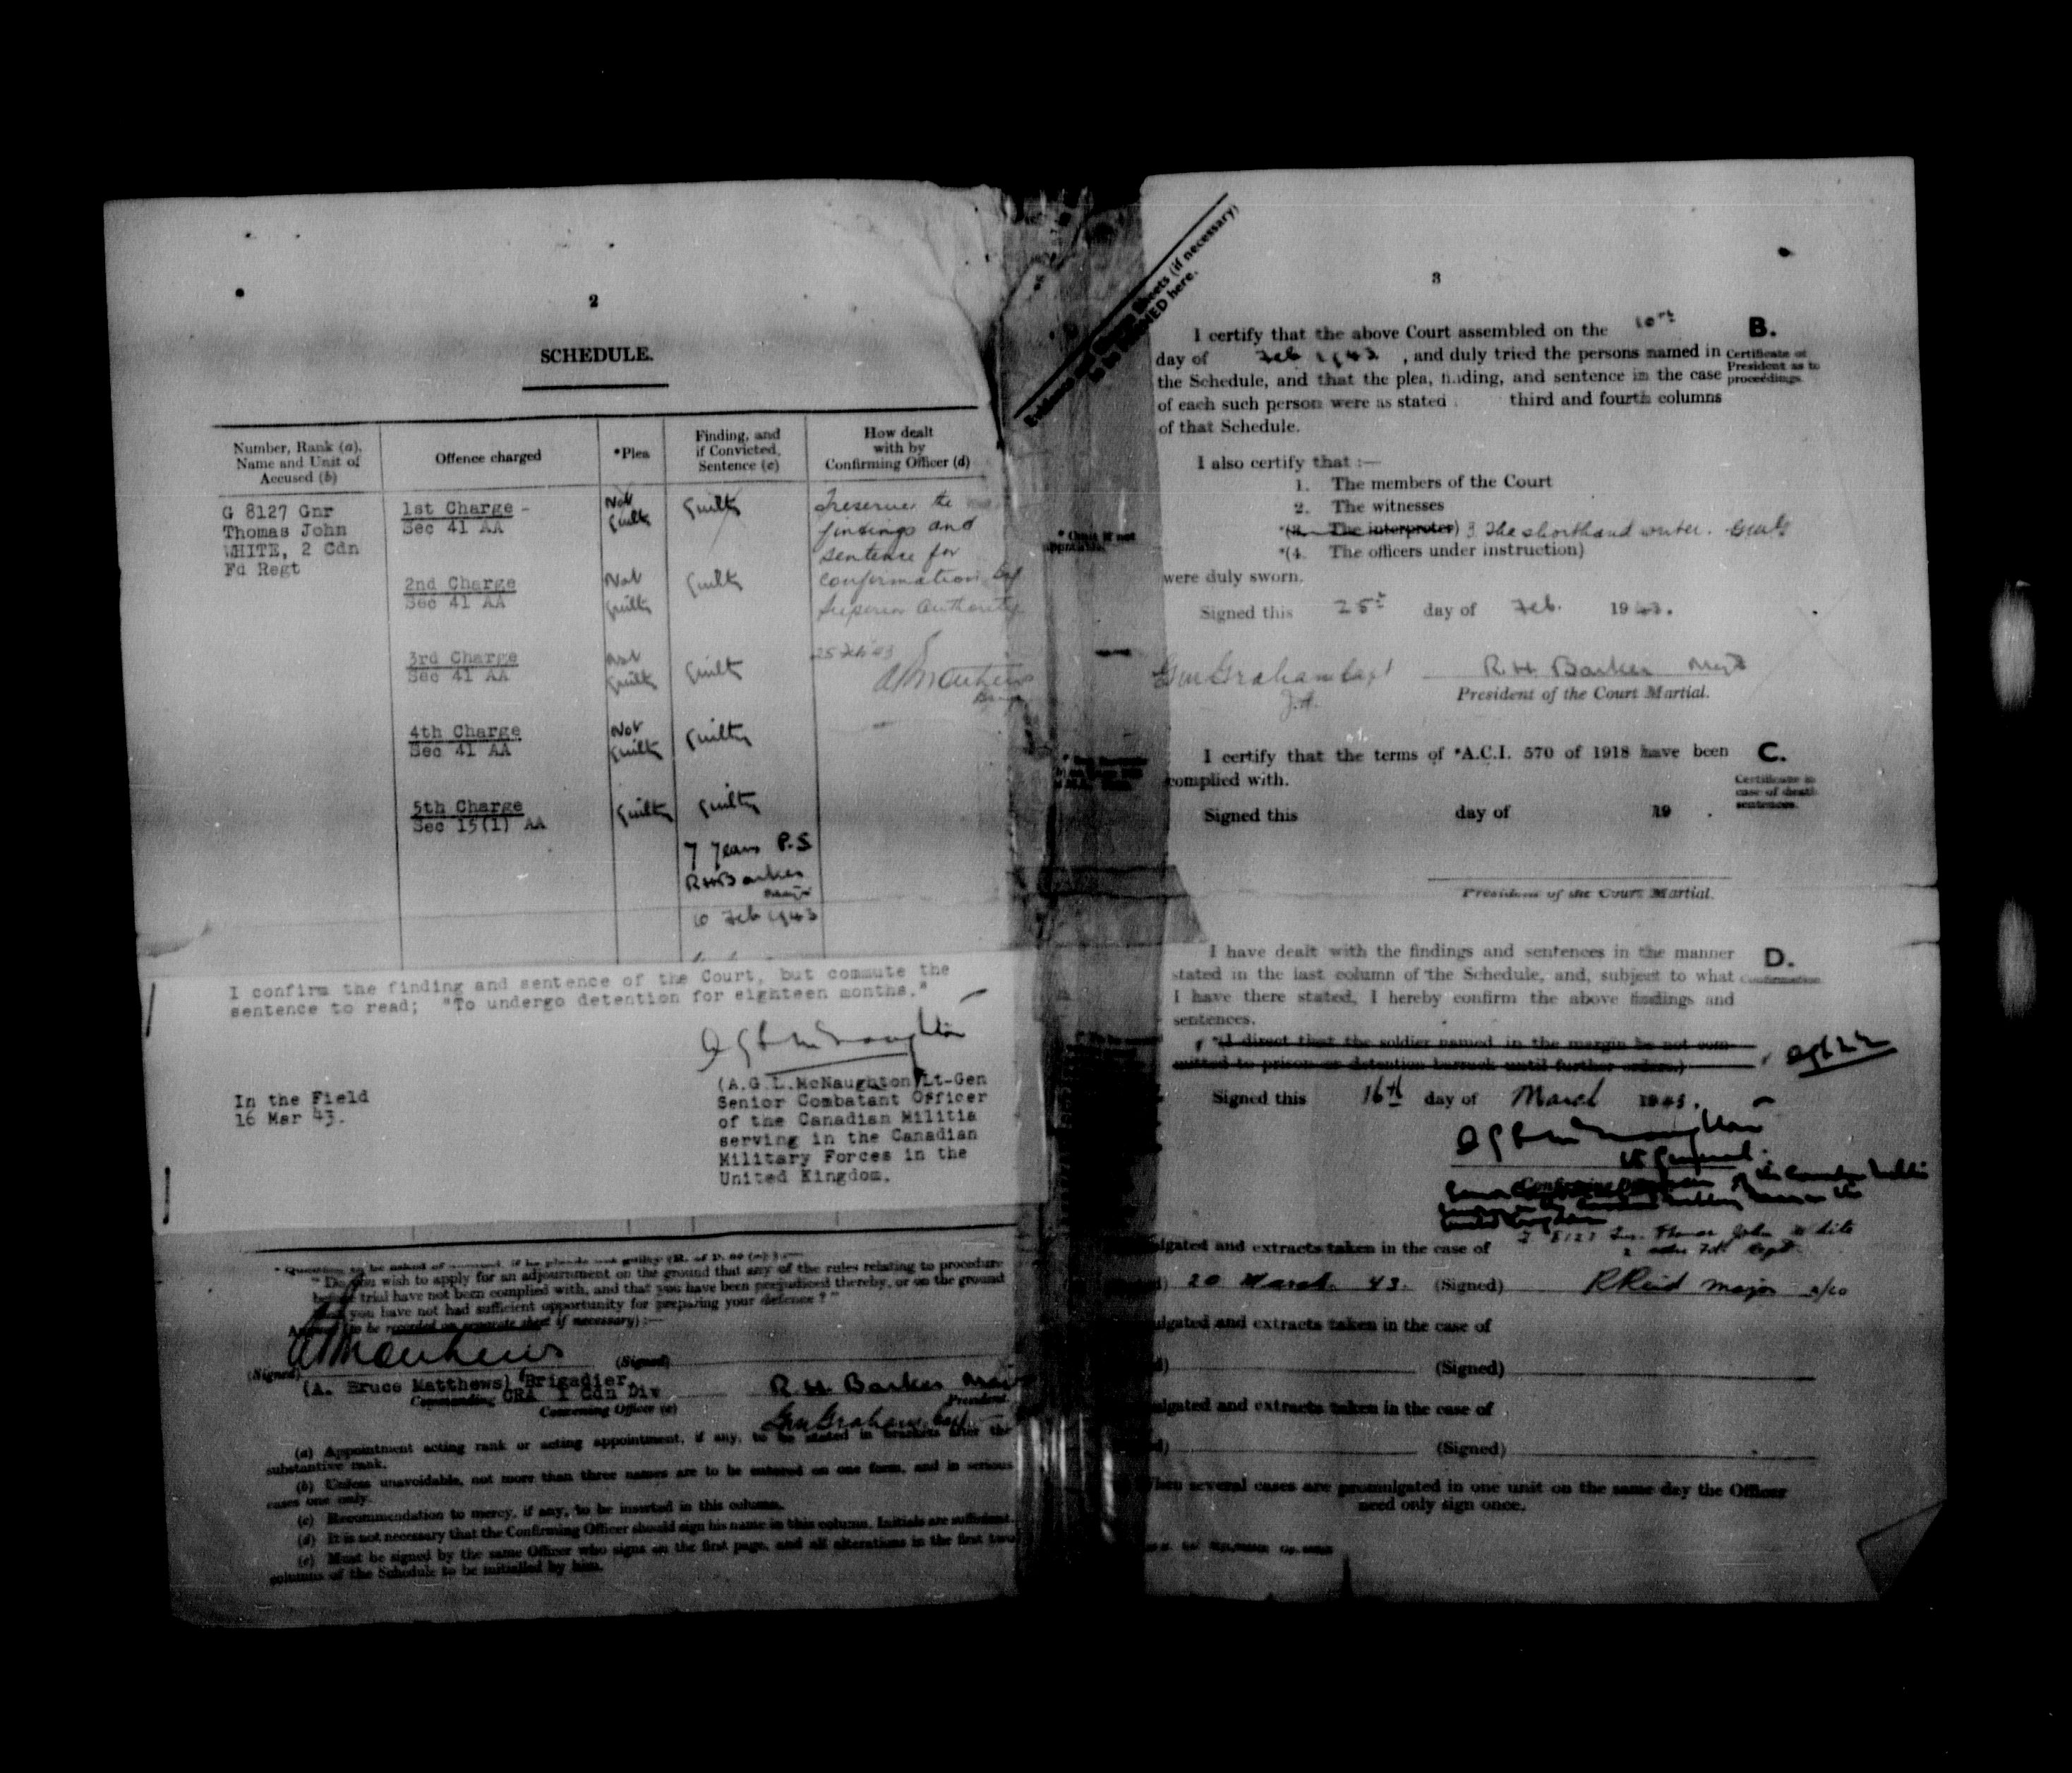 2
SCHEDULE.
Number, Rank (a), Name and Unit of Accused (b)
Offence charged
*Plea
Finding, and if Convicted, Sentence (c)
How dealt with by Confirming Officer (d)
G 8127 Gnr
Thomas John
WHITE, 2 Cdn
Fd Regt
1st Charge -
Sec 41 AA
Not
Guilty
Guilty
2nd Charge
Sec 41 AA
Not
Guilty
Guilty
3rd Charge
Sec 41 AA
Not
Guilty
Guilty
4th Charge
Sec 41 AA
Not
Guilty
Guilty
5th Charge
Sec 15(1) AA
Guilty
Guilty
7 years P.S
RHBarker
Major
10 Feb 1943
I reserve the
findings and
sentence for
confirmation by
Superior Authority
25 Feb 43
ABMatthews
Brig
I confirm the finding and sentence of the Court, but commute the
sentence to read; "To undergo detention for eighteen months."
(A.G.L.McNaughton)Lt-Gen
Senior Combatant Officer
of the Canadian Militia
serving in the Canadian
Military Forces in the
United Kingdom.
In the Field
16 Mar 43.
* Question to be asked of accused, if he pleads not guilty (R. of P. :—
"Do you wish to apply for an adjournment on the ground that any of the rules relating to procedure
before trial have not been complied with, and that you have been prejudiced thereby, or on the ground
you have not had sufficient opportunity for preparing your defence?"
to be recorded on separate sheet if necessary) :—
(Signed)
(Signed)
(A. Bruce Matthews) Brigadier,
Commanding CRA 1 Cdn Div
Convening Officer (e)
R.H. Barker Major
President.
GM Graham Capt
(a) Appointment acting rank or acting appointment, if any, to be stated in brackets after the
substantive rank.
(b) Unless unavoidable, not more than three names are to be entered on one form, and in serious
cases one only.
(c) Recommendation to mercy, if any, to be inserted in this column.
(d) It is not necessary that the Confirming Officer should sign his name in this column. Initials are sufficient.
(e) Must be signed by the same Officer who signs on the first page, and all alterations in the first two
columns of the Schedule to be initialled by him.
Sheets (if necessary)
here.
3
I certify that the above Court assembled on the 10th
day of Feb 1943, and duly tried the persons named in
the Schedule, and that the plea, finding, and sentence in the case
of each such person were as stated third and fourth columns
of that Schedule.
B.
Certificate of
President as to
proceedings.
I also certify that :—
1. The members of the Court
2. The witnesses
*(3. The interpreter) 3 The shorthand writer. GMG
*(4. The officers under instruction)
were duly sworn.
* Omit if not
applicable.
Signed this 25th day of Feb. 1943.
GM Graham Capt
J.A.
R.H. Barker Major
President of the Court Martial.
I certify that the terms of *A.C.I. 570 of 1918 have been
complied with.
C.
Certificate in
case of death
sentences.
Signed this day of 19 .
President of the Court Martial.
I have dealt with the findings and sentences in the manner
stated in the last column of the Schedule, and, subject to what
I have there stated, I hereby confirm the above findings and
sentences.
D.
Confirmation.
*(I direct that the soldier named in the margin be not com-
mitted to prison or detention barrack until further orders.)
Signed this 16th day of March 1943.
Lt General.
Confirming
United Kingdom
ulgated and extracts taken in the case of G 8127 Gnr. Thomas John White
2 Cdn Fd Regt
20 March 43. (Signed) R Reid Major a/co
ulgated and extracts taken in the case of
(Signed)
ulgated and extracts taken in the case of
(Signed)
When several cases are promulgated in one unit on the same day the Officer
need only sign once.